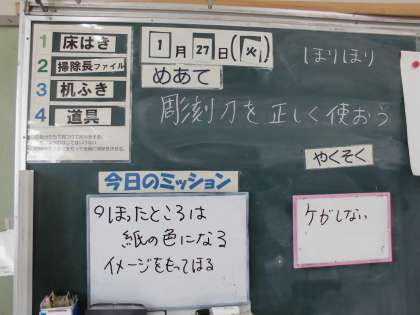 1 床はき
2 掃除長ファイル
3 机ふき
4 道具
1月27日(火)
ほりほり
めあて
彫刻刀を正しく使おう
やくそく
ケガしない
今日のミッション
ほったところは
紙の色になる
イメージをもってほる